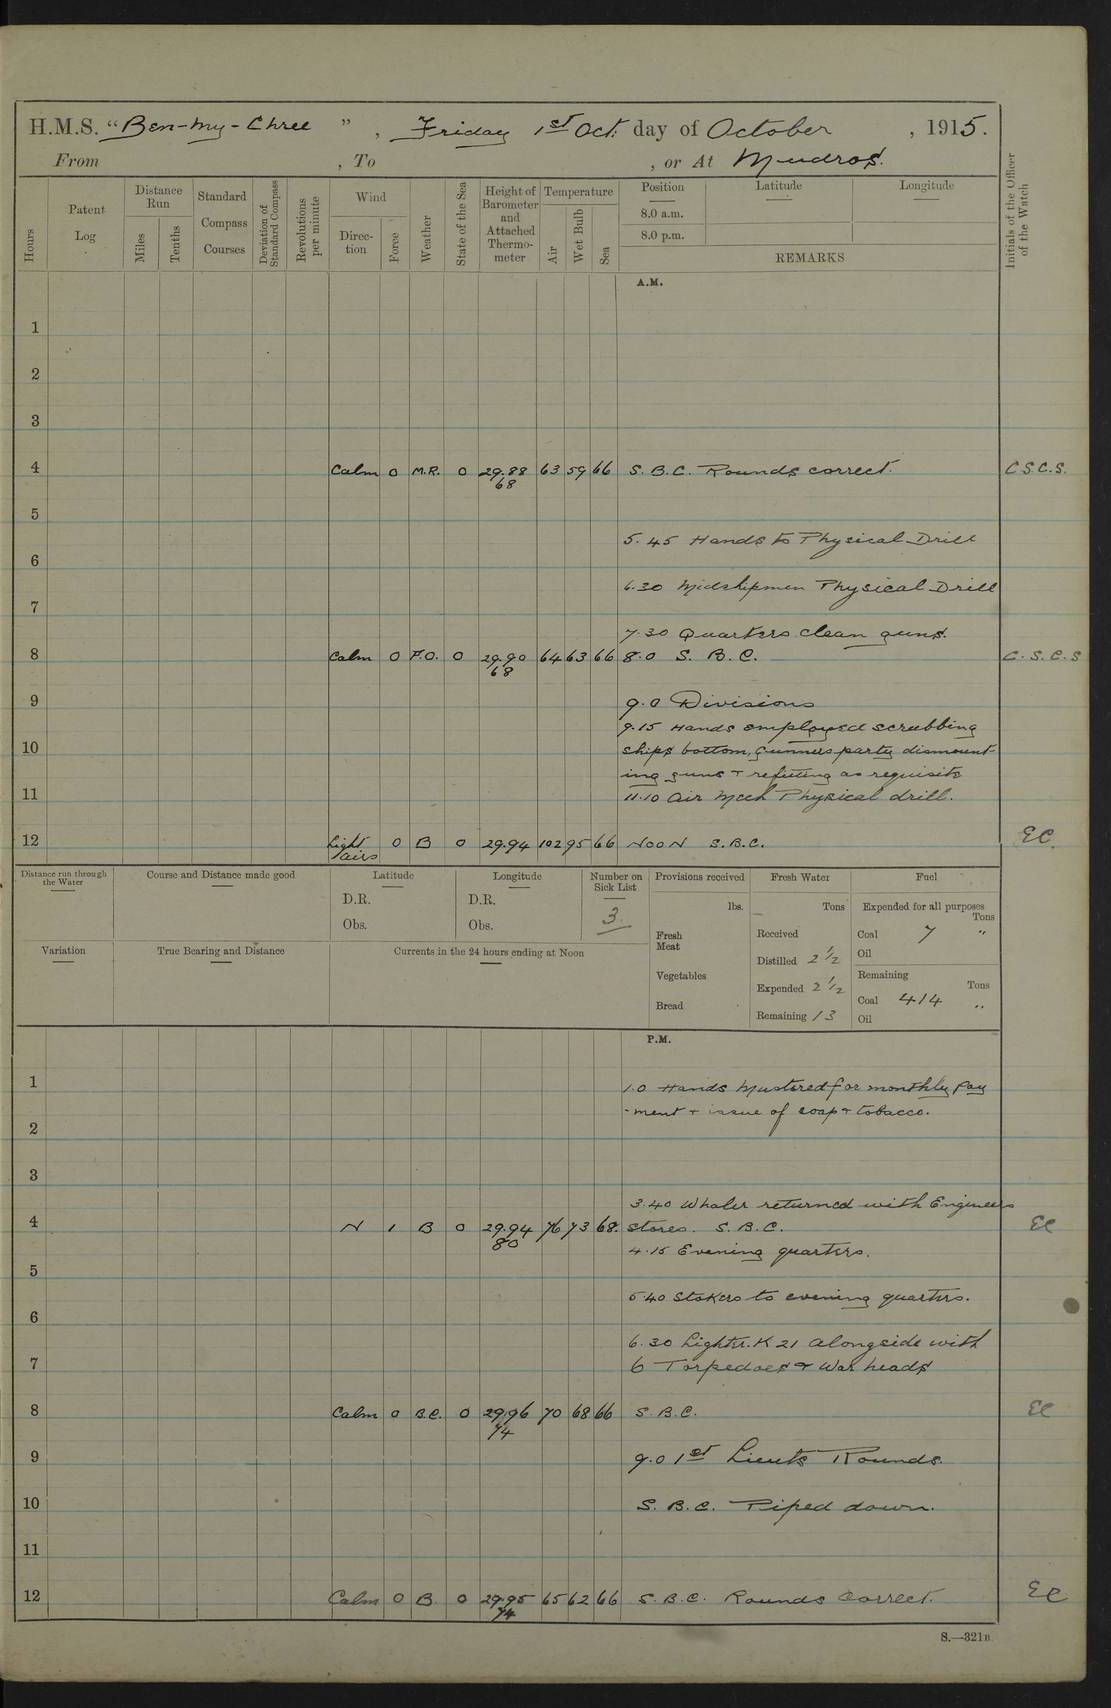 H.M.S. "Ben-my-Chree", Friday 1st Oct. day of October, 1915.
From , To , or At Mudros.
Hours
Patent Log
Distance Run
Miles
Tenths
Standard Compass Courses
Deviation of Standard Compass
Revolutions per minute
Wind
Direction
Force
Weather
State of the Sea
Height of Barometer and Attached Thermometer
Temperature
Air
Wet Bulb
Sea
Position
Latitude
Longitude
8.0 a.m.
8.0 p.m.
REMARKS
Initials of the Officer of the Watch
A.M.
1
2
3
4 Calm 0 M.R. 0 29.88 63 59 66 S.B.C. Rounds correct. C.S.C.S.
68
5
5.45 Hands to Physical Drill
6
6.30 Midshipmen Physical Drill
7
7.30 Quarters clean guns.
8 Calm 0 F.O. 0 29.90 64 63 66 8.0 S.B.C. C.S.C.S
68
9 9.0 Divisions
9.15 Hands employed scrubbing
10 ships bottom, gunners party dismount-
ing guns + refitting as requisite
11 11.10 Air Mech Physical drill.
12 Light airs 0 B 0 29.94 102 95 66 NOON S.B.C. EC.
Distance run through the Water
Course and Distance made good
Latitude
D.R.
Obs.
Longitude
D.R.
Obs.
Number on Sick List
3
Provisions received
lbs.
Fresh Meat
Vegetables
Bread
Fresh Water
Tons
Received
Distilled 2 1/2
Expended 2 1/2
Remaining 13
Fuel
Expended for all purposes
Tons
Coal 7 "
Oil
Remaining
Tons
Coal 414 "
Oil
Variation
True Bearing and Distance
Currents in the 24 hours ending at Noon
P.M.
1 1.0 Hands Mustered for monthly pay
-ment + issue of soap + tobacco.
2
3
3.40 Whaler returned with Engineers
4 N 1 B 0 29.94 76 73 68. stores. S.B.C. EC
80
4.15 Evening quarters.
5
5.40 Stokers to evening quarters.
6
6.30 Lighter K 21 alongside with
7 6 Torpedoes + War heads
8 Calm 0 B.C. 0 29.96 70 68 66 S.B.C. EC
74
9 9.0 1st Lieuts Rounds.
10 S.B.C. Piped down.
11
12 Calm 0 B 0 29.95 65 62 66 S.B.C. Rounds Correct. EC
74
S.—321B.